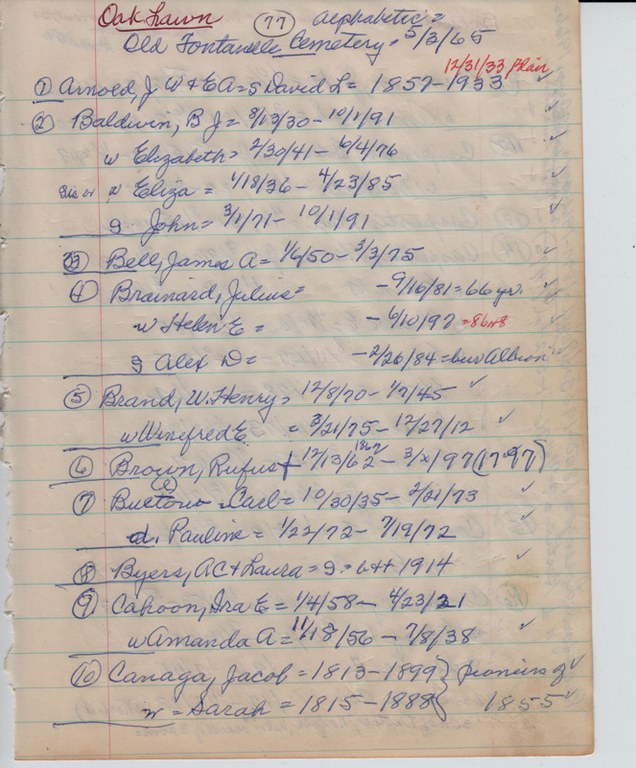 Oak Lawn (77) alphabetic =
Old Fontanelle Cemetery = 5/3/65
12/31/33 Blair
① Arnold, J W + E A = s David L = 1857-1933 ✓
② Baldwin, B J = 8/13/30 - 10/1/91 ✓
w Elizabeth = 2/30/41 - 6/4/76 ✓
Sis or w Eliza = 1/18/36 - 4/23/85 ✓
g John = 3/1/71 - 10/1/91 ✓
③ Bell, James A = 1/6/50 - 3/3/75 ✓
④ Brainard, Julius = - 9/16/81 = 66 yr. ✓
w Helen E = - 6/10/97 = 86 ✓
g Alex D = - 2/26/84 = bur Albion
⑤ Brand, W. Henry = 12/8/70 - 1/7/45 ✓
w Winifred E = 3/21/75 - 12/27/12 ✓
1862
⑥ Brown, Rufus + 12/13/62 - 3/x/97 (17.97)
⑦ Carl = 10/30/35 - 2/21/73 ✓
d. Pauline = 1/22/72 - 7/19/72 ✓
⑧ Byers, AC + Laura = g = 1914 ✓
⑨ Cahoon, Ira E = 1/4/58 - 4/23/21
w Amanda A = 11/18/56 - 7/8/38 ✓
⑩ Canaga, Jacob = 1813-1899 } pioneers of ✓
w = Sarah = 1815-1888 } 1855 ✓